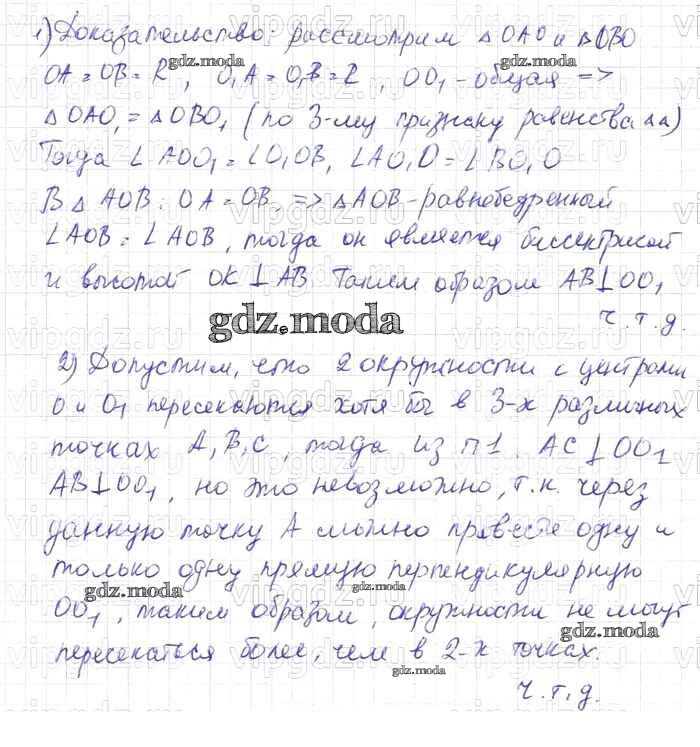 1) Доказательство: рассмотрим △OAO и △OBO
OA = OB = R, O₁A = O₁B = R, OO₁ - общая =>
gdz.moda
gdz.moda
△OAO₁ = △OBO₁ (по 3-му признаку равенства △△)
Тогда ∠AOO₁ = ∠O₁OB, ∠AO₁O = ∠BO₁O
В △AOB: OA = OB, => △AOB - равнобедренный
∠AOB = ∠AOB, тогда он является биссектрисой
и высотой OK ⊥ AB. Таким образом AB ⊥ OO₁
ч.т.д.
gdz.moda
2) Допустим, что 2 окружности с центрами
O и O₁ пересекаются хотя бы в 3-х различных
точках A, B, C, тогда из п1. AC ⊥ OO₁
AB ⊥ OO₁, но это невозможно, т.к. через
данную точку A можно провести одну и
только одну прямую перпендикулярную
gdz.moda
gdz.moda
OO₁, таким образом, окружности не могут
gdz.moda
пересекаться более, чем в 2-х точках.
gdz.moda
ч.т.д.